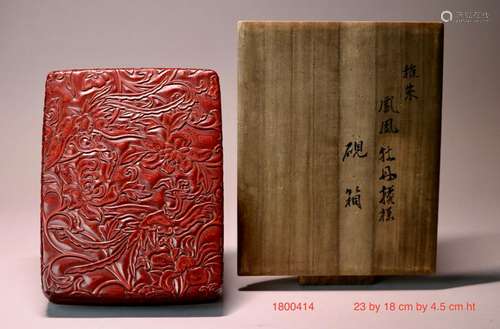 堆朱
鳳凰牡丹模様
硯箱
1800414
23 by 18 cm by 4.5 cm ht